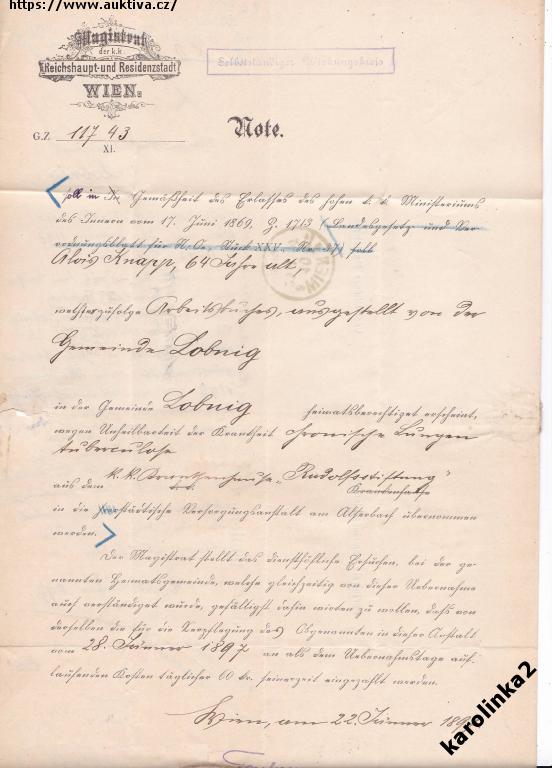 https://www.auktiva.cz/
Magistrat
der k.k.
Reichshaupt- und Residenzstadt
WIEN.
Selbstständiger Wirkungskreis
G.Z. 11743
XI.
Note.
soll in In Gemäßheit des Erlasses des hohen k. k. Ministeriums
des Innern vom 17. Juni 1869, Z. 1713 (Landesgesetz- und Ver-
ordnungsblatt für N. Oe. Stück XXV. Nr. 37) soll
Alois Knapp, 64 Jahre alt,
welcher zufolge Arbeitsbuches, ausgestellt von der
Gemeinde Lobnig
in der Gemeinde Lobnig heimatsberechtiget erscheint,
wegen Unheilbarkeit der Krankheit chronische Lungen
tuberculose
aus dem k. k. Krankenhause „Rudolfsstiftung"
Krankenhause
in die städtische Versorgungsanstalt am Alserbach übernommen
werden.
Der Magistrat stellt das diensthöfliche Ersuchen, bei der ge-
nannten Heimatsgemeinde, welche gleichzeitig von dieser Uebernahme
auch verständiget wurde, gefälligst dahin wirken zu wollen, dass von
derselben die für die Verpflegung des Obgenannten in dieser Anstalt
vom 28. Jänner 1897 an als dem Uebernahmstage auf-
laufenden Kosten täglicher 60 kr. seinerzeit eingezahlt werden.
Wien, am 22. Jänner 189
karolinka2